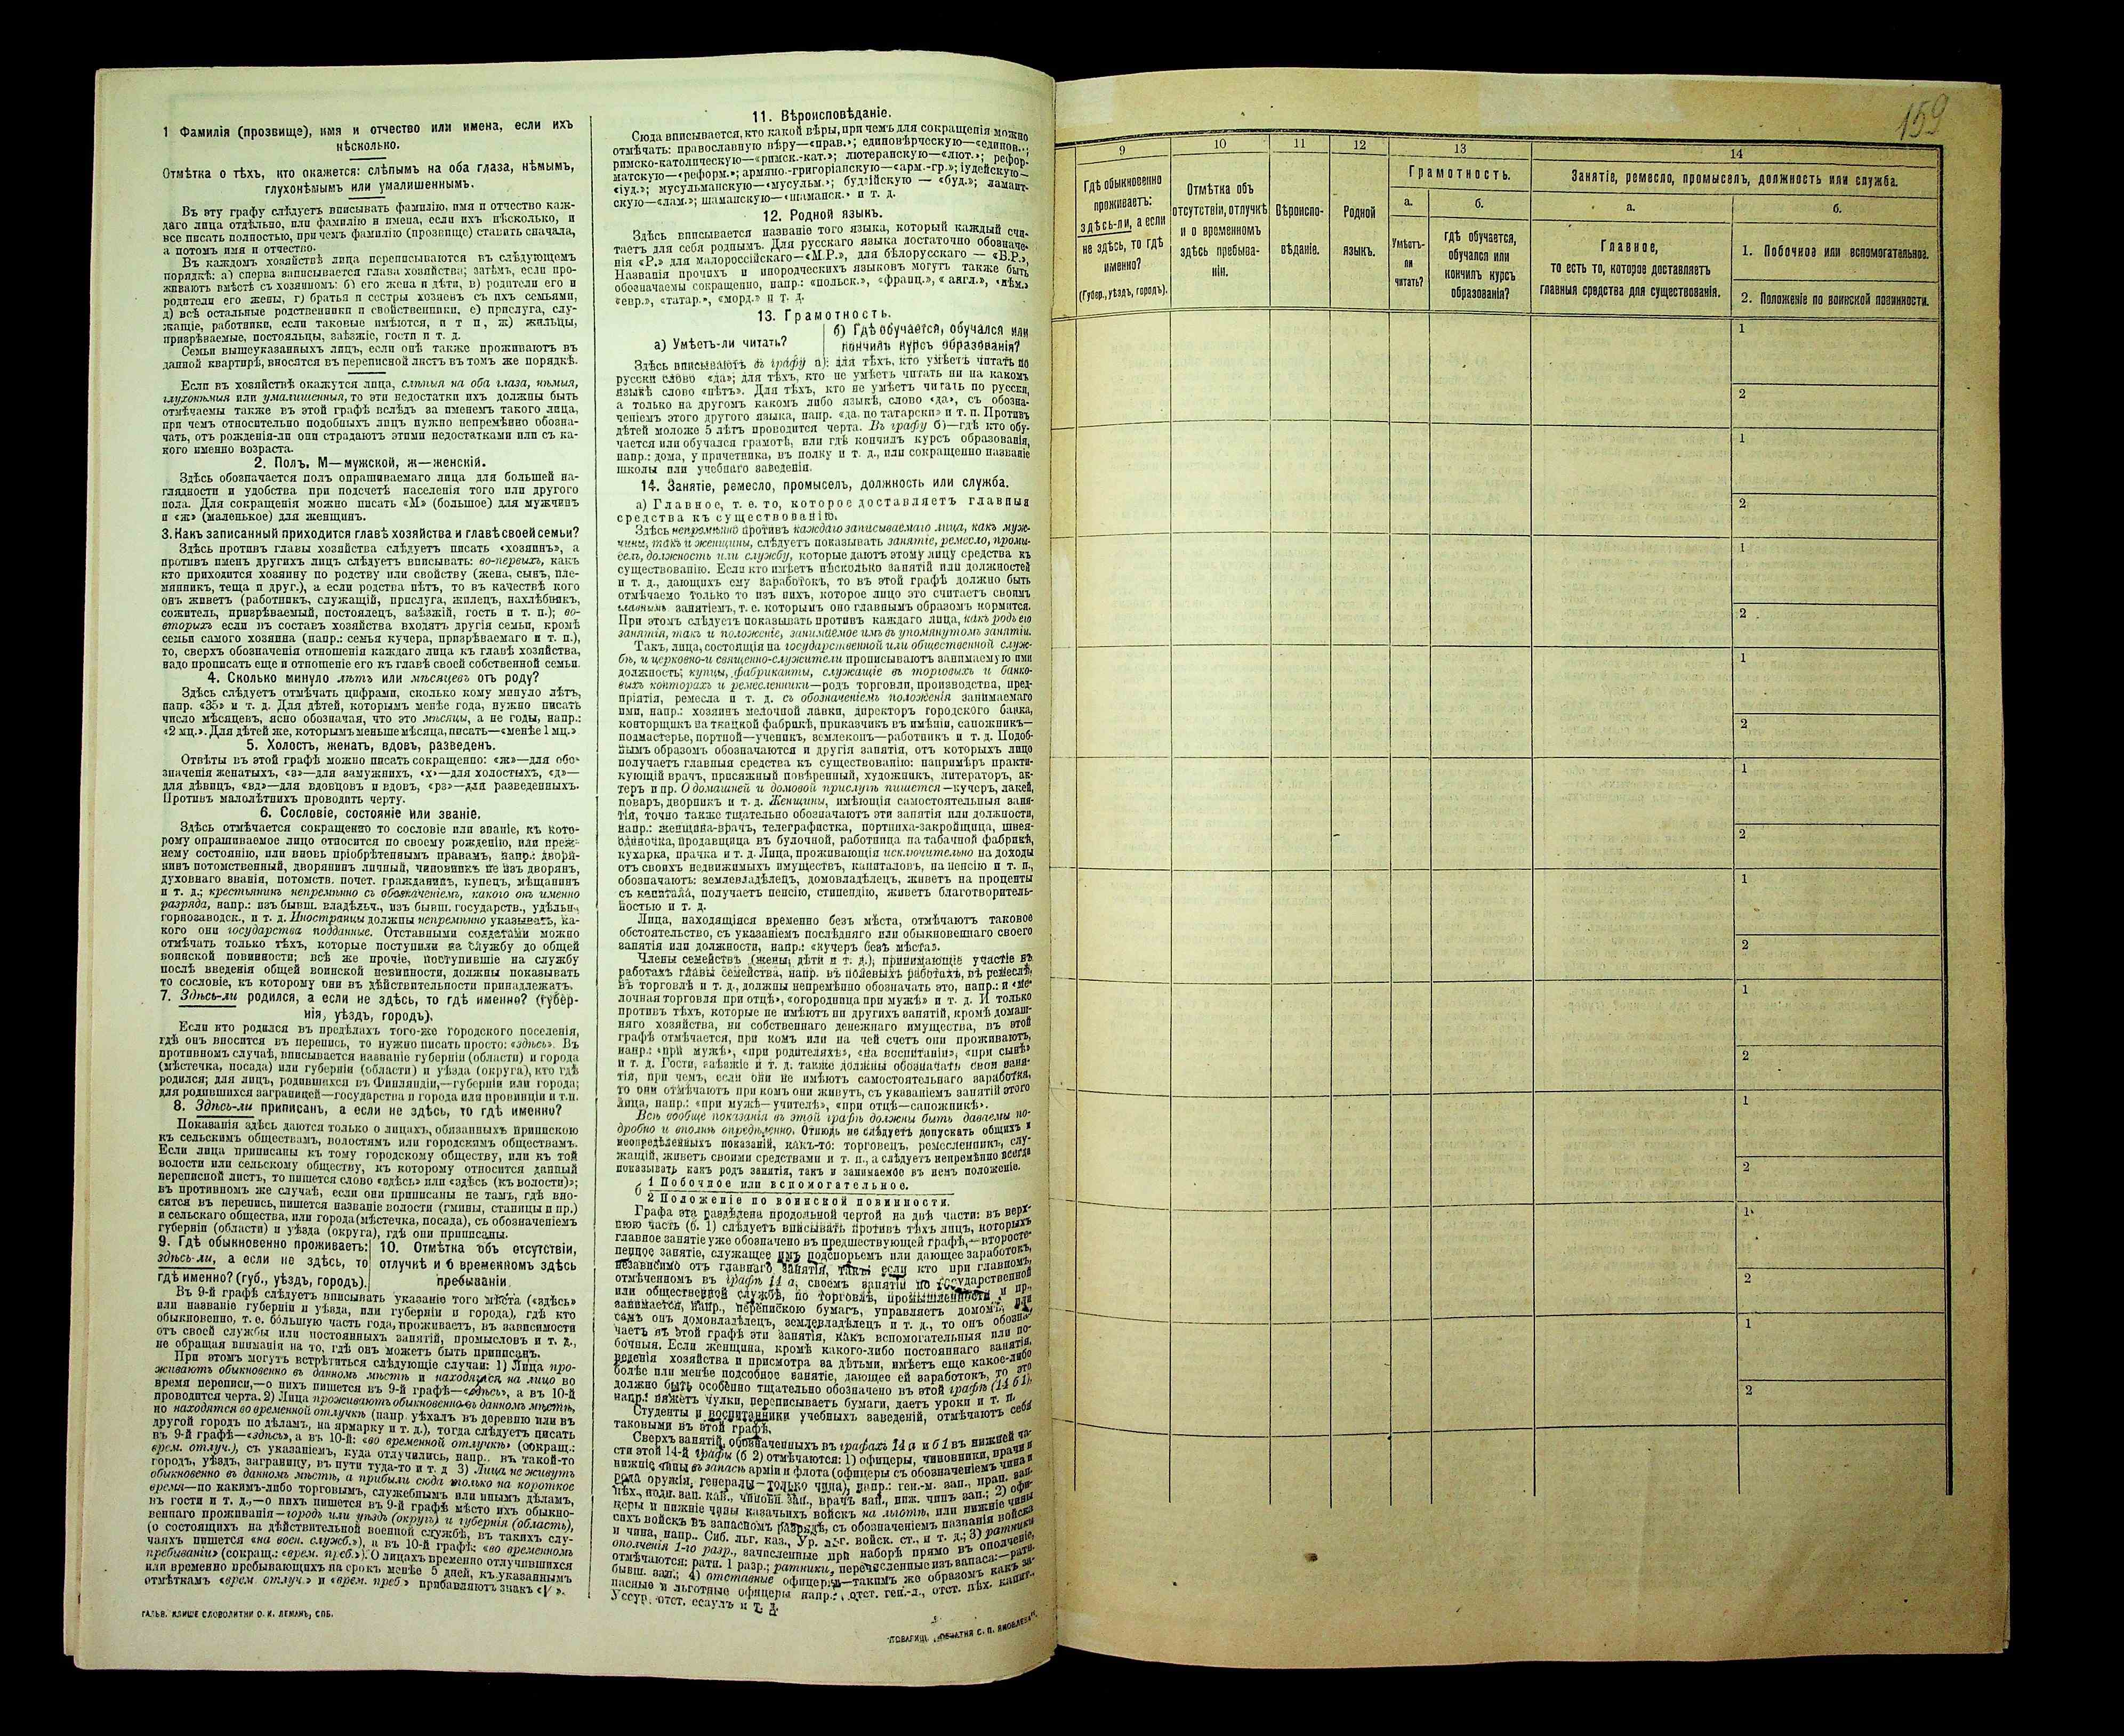 1 Фамилія (прозвище), имя и отчество или имена, если ихъ
нѣсколько.
Отмѣтка о тѣхъ, кто окажется: слѣпымъ на оба глаза, нѣмымъ,
глухонѣмымъ или умалишеннымъ.
Въ эту графу слѣдуетъ вписывать фамилію, имя и отчество каж-
даго лица отдѣльно, или фамилію и имена, если ихъ нѣсколько, и
все писать полностью, при чемъ фамилію (прозвище) ставить сначала,
а потомъ имя и отчество.
Въ каждомъ хозяйствѣ лица переписываются въ слѣдующемъ
порядкѣ: а) сперва записывается глава хозяйства; затѣмъ, если про-
живаютъ вмѣстѣ съ хозяиномъ: б) его жена и дѣти, в) родители его и
родители его жены, г) братья и сестры хозяевъ съ ихъ семьями,
д) всѣ остальные родственники и свойственники, е) прислуга, слу-
жащіе, работники, если таковые имѣются, и т п, ж) жильцы,
призрѣваемые, постояльцы, заѣзжіе, гости и т. д.
Семьи вышеуказанныхъ лицъ, если онѣ также проживаютъ въ
данной квартирѣ, вносятся въ переписной листъ въ томъ же порядкѣ.
Если въ хозяйствѣ окажутся лица, слѣпыя на оба глаза, нѣмыя,
глухонѣмыя или умалишенныя, то эти недостатки ихъ должны быть
отмѣчаемы также въ этой графѣ вслѣдъ за именемъ такого лица,
при чемъ относительно подобныхъ лицъ нужно непремѣнно обозна-
чать, отъ рожденія-ли они страдаютъ этими недостатками или съ ка-
кого именно возраста.
2. Полъ, М—мужской, ж—женскій.
Здѣсь обозначается полъ опрашиваемаго лица для большей на-
глядности и удобства при подсчетѣ населенія того или другого
пола. Для сокращенія можно писать «М» (большое) для мужчинъ
и «ж» (маленькое) для женщинъ.
3. Какъ записанный приходится главѣ хозяйства и главѣ своей семьи?
Здѣсь противъ главы хозяйства слѣдуетъ писать «хозяинъ», а
противъ именъ другихъ лицъ слѣдуетъ вписывать: во-первыхъ, какъ
кто приходится хозяину по родству или свойству (жена, сынъ, пле-
мянникъ, теща и друг.), а если родства нѣтъ, то въ качествѣ кого
онъ живетъ (работникъ, служащій, прислуга, жилецъ, нахлѣбникъ,
сожитель, призрѣваемый, постоялецъ, заѣзжій, гость и т. п.); во-
вторыхъ если въ составъ хозяйства входятъ другія семьи, кромѣ
семьи самого хозяина (напр.: семья кучера, призрѣваемаго и т. п.),
то, сверхъ обозначенія отношенія каждаго лица къ главѣ хозяйства,
надо прописать еще и отношеніе его къ главѣ своей собственной семьи.
4. Сколько минуло лѣтъ или мѣсяцевъ отъ роду?
Здѣсь слѣдуетъ отмѣчать цифрами, сколько кому минуло лѣтъ,
напр. «35» и т. д. Для дѣтей, которымъ менѣе года, нужно писать
число мѣсяцевъ, ясно обозначая, что это мѣсяцы, а не годы, напр.:
«2 мц.». Для дѣтей же, которымъ меньше мѣсяца, писать—«менѣе 1 мц.»
5. Холостъ, женатъ, вдовъ, разведенъ.
Отвѣты въ этой графѣ можно писать сокращенно: «ж»—для обо-
значенія женатыхъ, «з»—для замужнихъ, «х»—для холостыхъ, «д»—
для дѣвицъ, «вд»—для вдовцовъ и вдовъ, «рз»—для разведенныхъ.
Противъ малолѣтнихъ проводить черту.
6. Сословіе, состояніе или званіе.
Здѣсь отмѣчается сокращенно то сословіе или званіе, къ кото-
рому опрашиваемое лицо относится по своему рожденію, или преж-
нему состоянію, или вновь пріобрѣтеннымъ правамъ, напр.: дворя-
нинъ потомственный, дворянинъ личный, чиновникъ не изъ дворянъ,
духовнаго званія, потомств. почет. гражданинъ, купецъ, мѣщанинъ
и т. д.; крестьянинъ непремѣнно съ обозначеніемъ, какого онъ именно
разряда, напр.: изъ бывш. владѣльч., изъ бывш. государств., удѣльн.,
горнозаводск., и т. д. Иностранцы должны непремѣнно указывать, ка-
кого они государства подданные. Отставными солдатами можно
отмѣчать только тѣхъ, которые поступили на службу до общей
воинской повинности; всѣ же прочіе, поступившіе на службу
послѣ введенія общей воинской повинности, должны показывать
то сословіе, къ которому они въ дѣйствительности принадлежатъ.
7. Здѣсь-ли родился, а если не здѣсь, то гдѣ именно? (Губер-
нія, уѣздъ, городъ),
Если кто родился въ предѣлахъ того-же городского поселенія,
гдѣ онъ вносится въ перепись, то нужно писать просто: «здѣсь». Въ
противномъ случаѣ, вписывается названіе губерніи (области) и города
(мѣстечка, посада) или губерніи (области) и уѣзда (округа), кто гдѣ
родился; для лицъ, родившихся въ Финляндіи,—губерніи или города;
для родившихся заграницей—государства и города или провинціи и т.п.
8. Здѣсь-ли приписанъ, а если не здѣсь, то гдѣ именно?
Показанія здѣсь даются только о лицахъ, обязанныхъ припискою
къ сельскимъ обществамъ, волостямъ или городскимъ обществамъ.
Если лица приписаны къ тому городскому обществу, или къ той
волости или сельскому обществу, къ которому относится данный
переписной листъ, то пишется слово «здѣсь» или «здѣсь (къ волости)»;
въ противномъ же случаѣ, если они приписаны не тамъ, гдѣ вно-
сятся въ перепись, пишется названіе волости (гмины, станицы и пр.)
и сельскаго общества, или города (мѣстечка, посада), съ обозначеніемъ
губерніи (области) и уѣзда (округа), гдѣ они приписаны.
9. Гдѣ обыкновенно проживаетъ:
здѣсь-ли, а если не здѣсь, то
гдѣ именно? (губ., уѣздъ, городъ).
10. Отмѣтка объ отсутствіи,
отлучкѣ и о временномъ здѣсь
пребываніи
Въ 9-й графѣ слѣдуетъ вписывать указаніе того мѣста («здѣсь»
или названіе губерніи и уѣзда, или губерніи и города), гдѣ кто
обыкновенно, т. е. бо́льшую часть года, проживаетъ, въ зависимости
отъ своей службы или постоянныхъ занятій, промысловъ и т. д.,
не обращая вниманія на то, гдѣ онъ можетъ быть приписанъ.
При этомъ могутъ встрѣтиться слѣдующіе случаи: 1) Лица про-
живаютъ обыкновенно въ данномъ мѣстѣ и находятся на лицо во
время переписи,—о нихъ пишется въ 9-й графѣ—«здѣсь», а въ 10-й
проводится черта. 2) Лица проживаютъ обыкновенно въ данномъ мѣстѣ,
но находятся во временной отлучкѣ (напр. уѣхалъ въ деревню или въ
другой городъ по дѣламъ, на ярмарку и т. д.), тогда слѣдуетъ писать
въ 9-й графѣ—«здѣсь», а въ 10-й: «во временной отлучкѣ» (сокращ.:
врем. отлуч.), съ указаніемъ, куда отлучились, напр.. въ такой-то
городъ, уѣздъ, заграницу, въ пути туда-то и т. д 3) Лица не живутъ
обыкновенно въ данномъ мѣстѣ, а прибыли сюда только на короткое
время—по какимъ-либо торговымъ, служебнымъ или инымъ дѣламъ,
въ гости и т. д.,—о нихъ пишется въ 9-й графѣ мѣсто ихъ обыкно-
веннаго проживанія—городъ или уѣздъ (округъ) и губернія (область),
(о состоящихъ на дѣйствительной военной службѣ, въ такихъ слу-
чаяхъ пишется «на воен. служб.»), а въ 10-й графѣ: «во временномъ
пребываніи» (сокращ.: «врем. преб.»). О лицахъ временно отлучившихся
или временно пребывающихъ на срокъ менѣе 5 дней, къ указаннымъ
отмѣткамъ «врем. отлуч.» и «врем. преб » прибавляютъ знакъ «|/ ».
ГАЛЬВ. КЛИШЕ СЛОВОЛИТНИ О. И. ЛЕМАНЪ, СПБ.
11. Вѣроисповѣданіе.
Сюда вписывается, кто какой вѣры, при чемъ для сокращенія можно
отмѣчать: православную вѣру—«прав.»; единовѣрческую—«единов.»;
римско-католическую—«римск.-кат.»; лютеранскую—«лют.»; рефор-
матскую—«реформ.»; армяно-григоріанскую—«арм.-гр.»; іудейскую—
«іуд.»; мусульманскую—«мусульм.»; буддійскую — «буд.»; ламаит-
скую—«лам.»; шаманскую—«шаманск.» и т. д.
12. Родной языкъ.
Здѣсь вписывается названіе того языка, который каждый счи-
таетъ для себя роднымъ. Для русскаго языка достаточно обозначе-
нія «Р.» для малороссійскаго—«М.Р.», для бѣлорусскаго — «Б.Р.»,
Названія прочихъ и инородческихъ языковъ могутъ также быть
обозначаемы сокращенно, напр.: «польск.», «франц.», « англ.», «нѣм.»
«евр.», «татар.», «морд.» и т. д.
13. Грамотность.
а) Умѣетъ-ли читать?
б) Гдѣ обучается, обучался или
кончилъ курсъ образованія?
Здѣсь вписываютъ въ графу а): для тѣхъ, кто умѣетъ читать по
русски слово «да»; для тѣхъ, кто не умѣетъ читать ни на какомъ
языкѣ слово «нѣтъ». Для тѣхъ, кто не умѣетъ читать по русски,
а только на другомъ какомъ либо языкѣ, слово «да», съ обозна-
ченіемъ этого другого языка, напр. «да, по татарски» и т. п. Противъ
дѣтей моложе 5 лѣтъ проводится черта. Въ графу б)—гдѣ кто обу-
чается или обучался грамотѣ, или гдѣ кончилъ курсъ образованія,
напр.: дома, у причетника, въ полку и т. д., или сокращенно названіе
школы или учебнаго заведенія.
14. Занятіе, ремесло, промыселъ, должность или служба.
а) Главное, т. е. то, которое доставляетъ главныя
средства къ существованію.
Здѣсь непремѣнно противъ каждаго записываемаго лица, какъ муж-
чины, такъ и женщины, слѣдуетъ показывать занятіе, ремесло, промы-
селъ, должность или службу, которые даютъ этому лицу средства къ
существованію. Если кто имѣетъ нѣсколько занятій или должностей
и т. д., дающихъ ему заработокъ, то въ этой графѣ должно быть
отмѣчаемо только то изъ нихъ, которое лицо это считаетъ своимъ
главнымъ занятіемъ, т. е. которымъ оно главнымъ образомъ кормится.
При этомъ слѣдуетъ показывать противъ каждаго лица, какъ родъ его
занятія, такъ и положеніе, занимаемое имъ въ упомянутомъ занятіи.
Такъ, лица, состоящія на государственной или общественной служ-
бѣ, и церковно-и священно-служители прописываютъ занимаемую ими
должность; купцы, фабриканты, служащіе въ торговыхъ и банко-
выхъ конторахъ и ремесленники—родъ торговли, производства, пред-
пріятія, ремесла и т. д. съ обозначеніемъ положенія занимаемаго
ими, напр.: хозяинъ мелочной лавки, директоръ городского банка,
конторщикъ на ткацкой фабрикѣ, приказчикъ въ имѣніи, сапожникъ—
подмастерье, портной—ученикъ, землекопъ—работникъ и т. д. Подоб-
нымъ образомъ обозначаются и другія занятія, отъ которыхъ лицо
получаетъ главныя средства къ существованію: напримѣръ практи-
кующій врачъ, присяжный повѣренный, художникъ, литераторъ, ак-
теръ и пр. О домашней и домовой прислугѣ пишется—кучеръ, лакей,
поваръ, дворникъ и т. д. Женщины, имѣющія самостоятельныя заня-
тія, точно также тщательно обозначаютъ эти занятія или должности,
напр.: женщина-врачъ, телеграфистка, портниха-закройщица, швея-
одиночка, продавщица въ булочной, работница на табачной фабрикѣ,
кухарка, прачка и т. д. Лица, проживающія исключительно на доходы
отъ своихъ недвижимыхъ имуществъ, капиталовъ, на пенсію и т. п.,
обозначаютъ: землевладѣлецъ, домовладѣлецъ, живетъ на проценты
съ капитала, получаетъ пенсію, стипендію, живетъ благотворитель-
ностью и т. д.
Лица, находящіяся временно безъ мѣста, отмѣчаютъ таковое
обстоятельство, съ указаніемъ послѣдняго или обыкновеннаго своего
занятія или должности, напр.: «кучеръ безъ мѣста».
Члены семействъ (жены, дѣти и т. д.), принимающіе участіе въ
работахъ главы семейства, напр. въ полевыхъ работахъ, въ ремеслѣ,
въ торговлѣ и т. д., должны непремѣнно обозначать это, напр.: и «ме-
лочная торговля при отцѣ», «огородница при мужѣ» и т. д. И только
противъ тѣхъ, которые не имѣютъ ни другихъ занятій, кромѣ домаш-
няго хозяйства, ни собственнаго денежнаго имущества, въ этой
графѣ отмѣчается, при комъ или на чей счетъ они проживаютъ,
напр.: «при мужѣ», «при родителяхъ», «на воспитаніи», «при сынѣ»
и т. д. Гости, заѣзжіе и т. д. также должны обозначать свои заня-
тія, при чемъ, если они не имѣютъ самостоятельнаго заработка,
то они отмѣчаютъ при комъ они живутъ, съ указаніемъ занятій этого
лица, напр.: «при мужѣ—учителѣ», «при отцѣ—сапожникѣ».
Всѣ вообще показанія въ этой графѣ должны быть даваемы по-
дробно и вполнѣ опредѣленно. Отнюдь не слѣдуетъ допускать общихъ и
неопредѣленныхъ показаній, какъ-то: торговецъ, ремесленникъ, слу-
жащій, живетъ своими средствами и т. п., а слѣдуетъ непремѣнно всегда
показывать какъ родъ занятія, такъ и занимаемое въ немъ положеніе.
б 1 Побочное или вспомогательное.
2 Положеніе по воинской повинности.
Графа эта раздѣлена продольной чертой на двѣ части: въ верх-
нюю часть (б. 1) слѣдуетъ вписывать противъ тѣхъ лицъ, которыхъ
главное занятіе уже обозначено въ предшествующей графѣ,—второсте-
пенное занятіе, служащее имъ подспорьемъ или дающее заработокъ,
независимо отъ главнаго занятія, такъ: если кто при главномъ,
отмѣченномъ въ графѣ 14 а, своемъ занятіи по государственной
или общественной службѣ, по торговлѣ, промышленности и пр.,
занимается, напр., перепискою бумагъ, управляетъ домомъ, или
самъ онъ домовладѣлецъ, землевладѣлецъ и т. д., то онъ обозна-
чаетъ въ этой графѣ эти занятія, какъ вспомогательныя или по-
бочныя. Если женщина, кромѣ какого-либо постояннаго занятія,
веденія хозяйства и присмотра за дѣтьми, имѣетъ еще какое-либо
болѣе или менѣе подсобное занятіе, дающее ей заработокъ, то это
должно быть особенно тщательно обозначено въ этой графѣ (14 б 1),
напр.: вяжетъ чулки, переписываетъ бумаги, даетъ уроки и т. п.
Студенты и воспитанники учебныхъ заведеній, отмѣчаютъ себя
таковыми въ этой графѣ.
Сверхъ занятій, обозначенныхъ въ графахъ 14 а и б 1 въ нижней ча-
сти этой 14-й графы (б 2) отмѣчаются: 1) офицеры, чиновники, врачи и
нижніе чины въ запасѣ арміи и флота (офицеры съ обозначеніемъ чина и
рода оружія, генералы—только чина), напр.: ген.-м. зап., прап. зап.
пѣх., подп. зап. кав., чиновн. зап., врачъ зап., ниж. чинъ зап.; 2) офи-
церы и нижніе чины казачьихъ войскъ на льготѣ, или нижніе чины
сихъ войскъ въ запасномъ разрядѣ, съ обозначеніемъ названія войска
и чина, напр.. Сиб. льг. каз., Ур. льг. войск. ст., и т. д.; 3) ратники
ополченія 1-го разр., зачисленные при наборѣ прямо въ ополченіе,
отмѣчаются: ратн. 1 разр.; ратники, перечисленные изъ запаса:—ратн.
бывш. зап.; 4) отставные офицеры—такимъ же образомъ какъ за-
пасные и льготные офицеры напр.: отст. ген.-л., отст. пѣх. капит.,
Уссур. отст. есаулъ и т. д.
ТОВАРИЩ. „ПЕЧАТНЯ С. П. ЯКОВЛЕВА“.
159
9
10
11
12
13
14
Гдѣ обыкновенно
проживаетъ:
здѣсь-ли, а если
не здѣсь, то гдѣ
именно?
(Губер., уѣздъ, городъ).
Отмѣтка объ
отсутствіи, отлучкѣ
и о временномъ
здѣсь пребыва-
ніи.
Вѣроиспо-
вѣданіе.
Родной
языкъ.
Грамотность.
а.
Умѣетъ-
ли
читать?
б.
гдѣ обучается,
обучался или
кончилъ курсъ
образованія?
Занятіе, ремесло, промыселъ, должность или служба.
а.
Главное,
то есть то, которое доставляетъ
главныя средства для существованія.
б.
1. Побочное или вспомогательное.
2. Положеніе по воинской повинности.
1
2
1
2
1
2
1
2
1
2
1
2
1
2
1
2
1
2
1
2